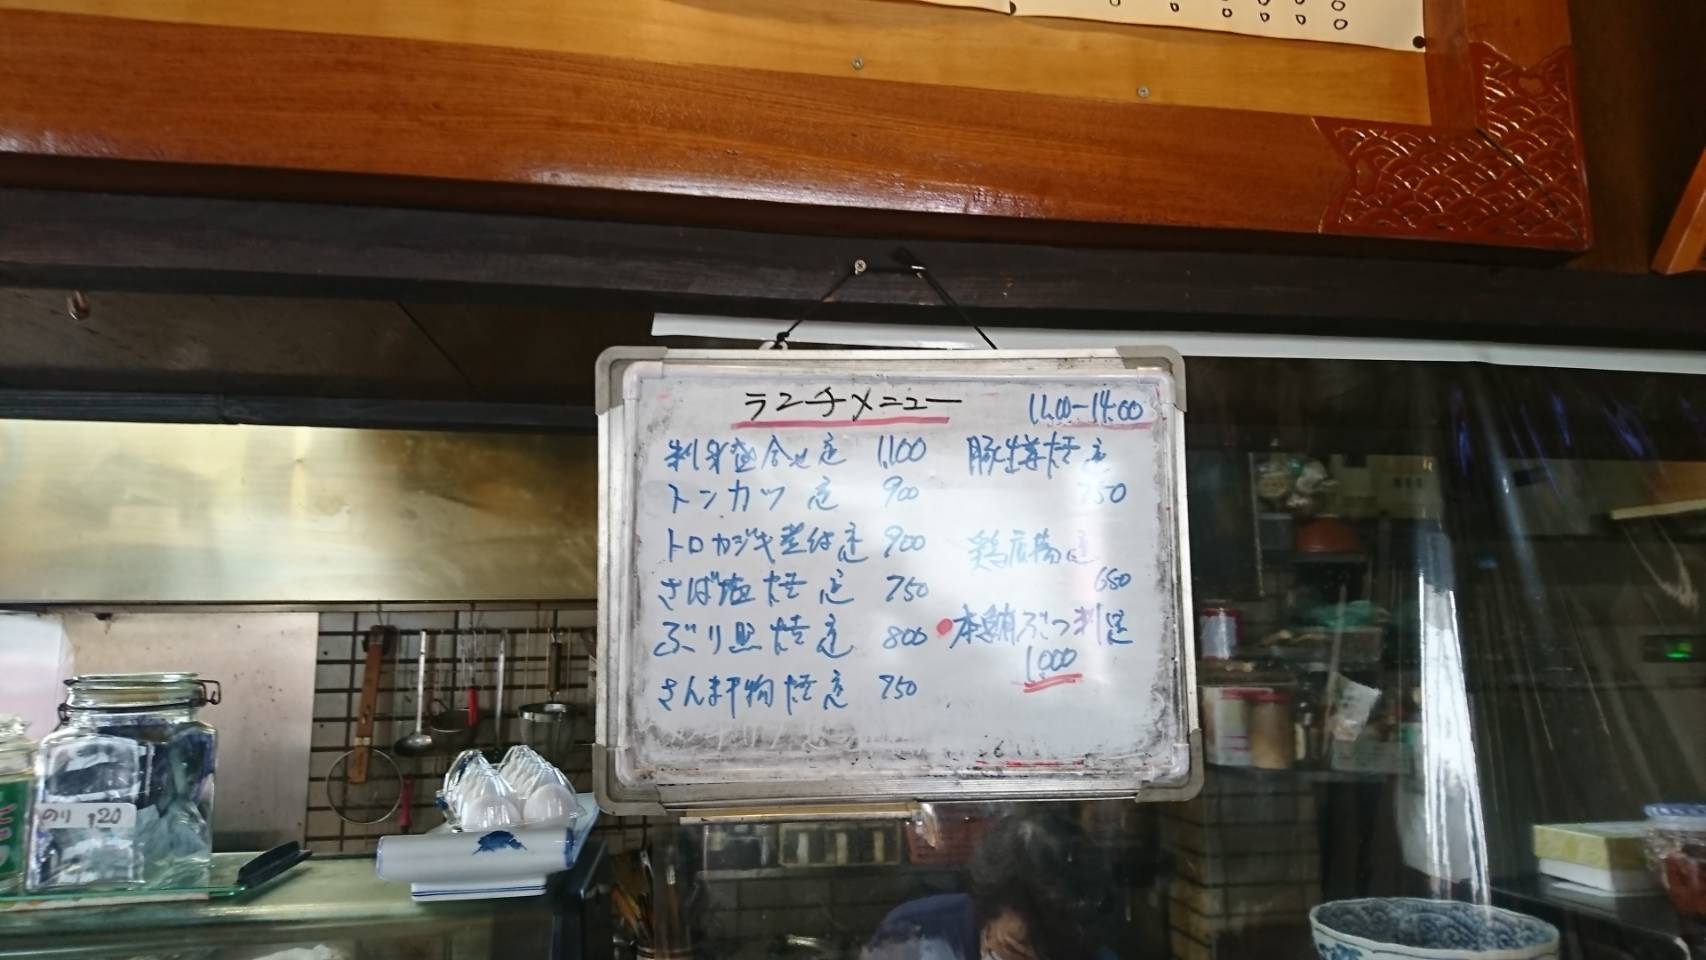 ランチメニュー 11.00-14.00
刺身盛合せ定 1,100
トンカツ定 900
トロカジキ煮付定 900
さば塩焼定 750
ぶり照焼定 800
さんま干物焼定 750
豚生姜焼定
750
鶏唐揚定
650
本鮪ぶつ刺定
1,000
のり 120